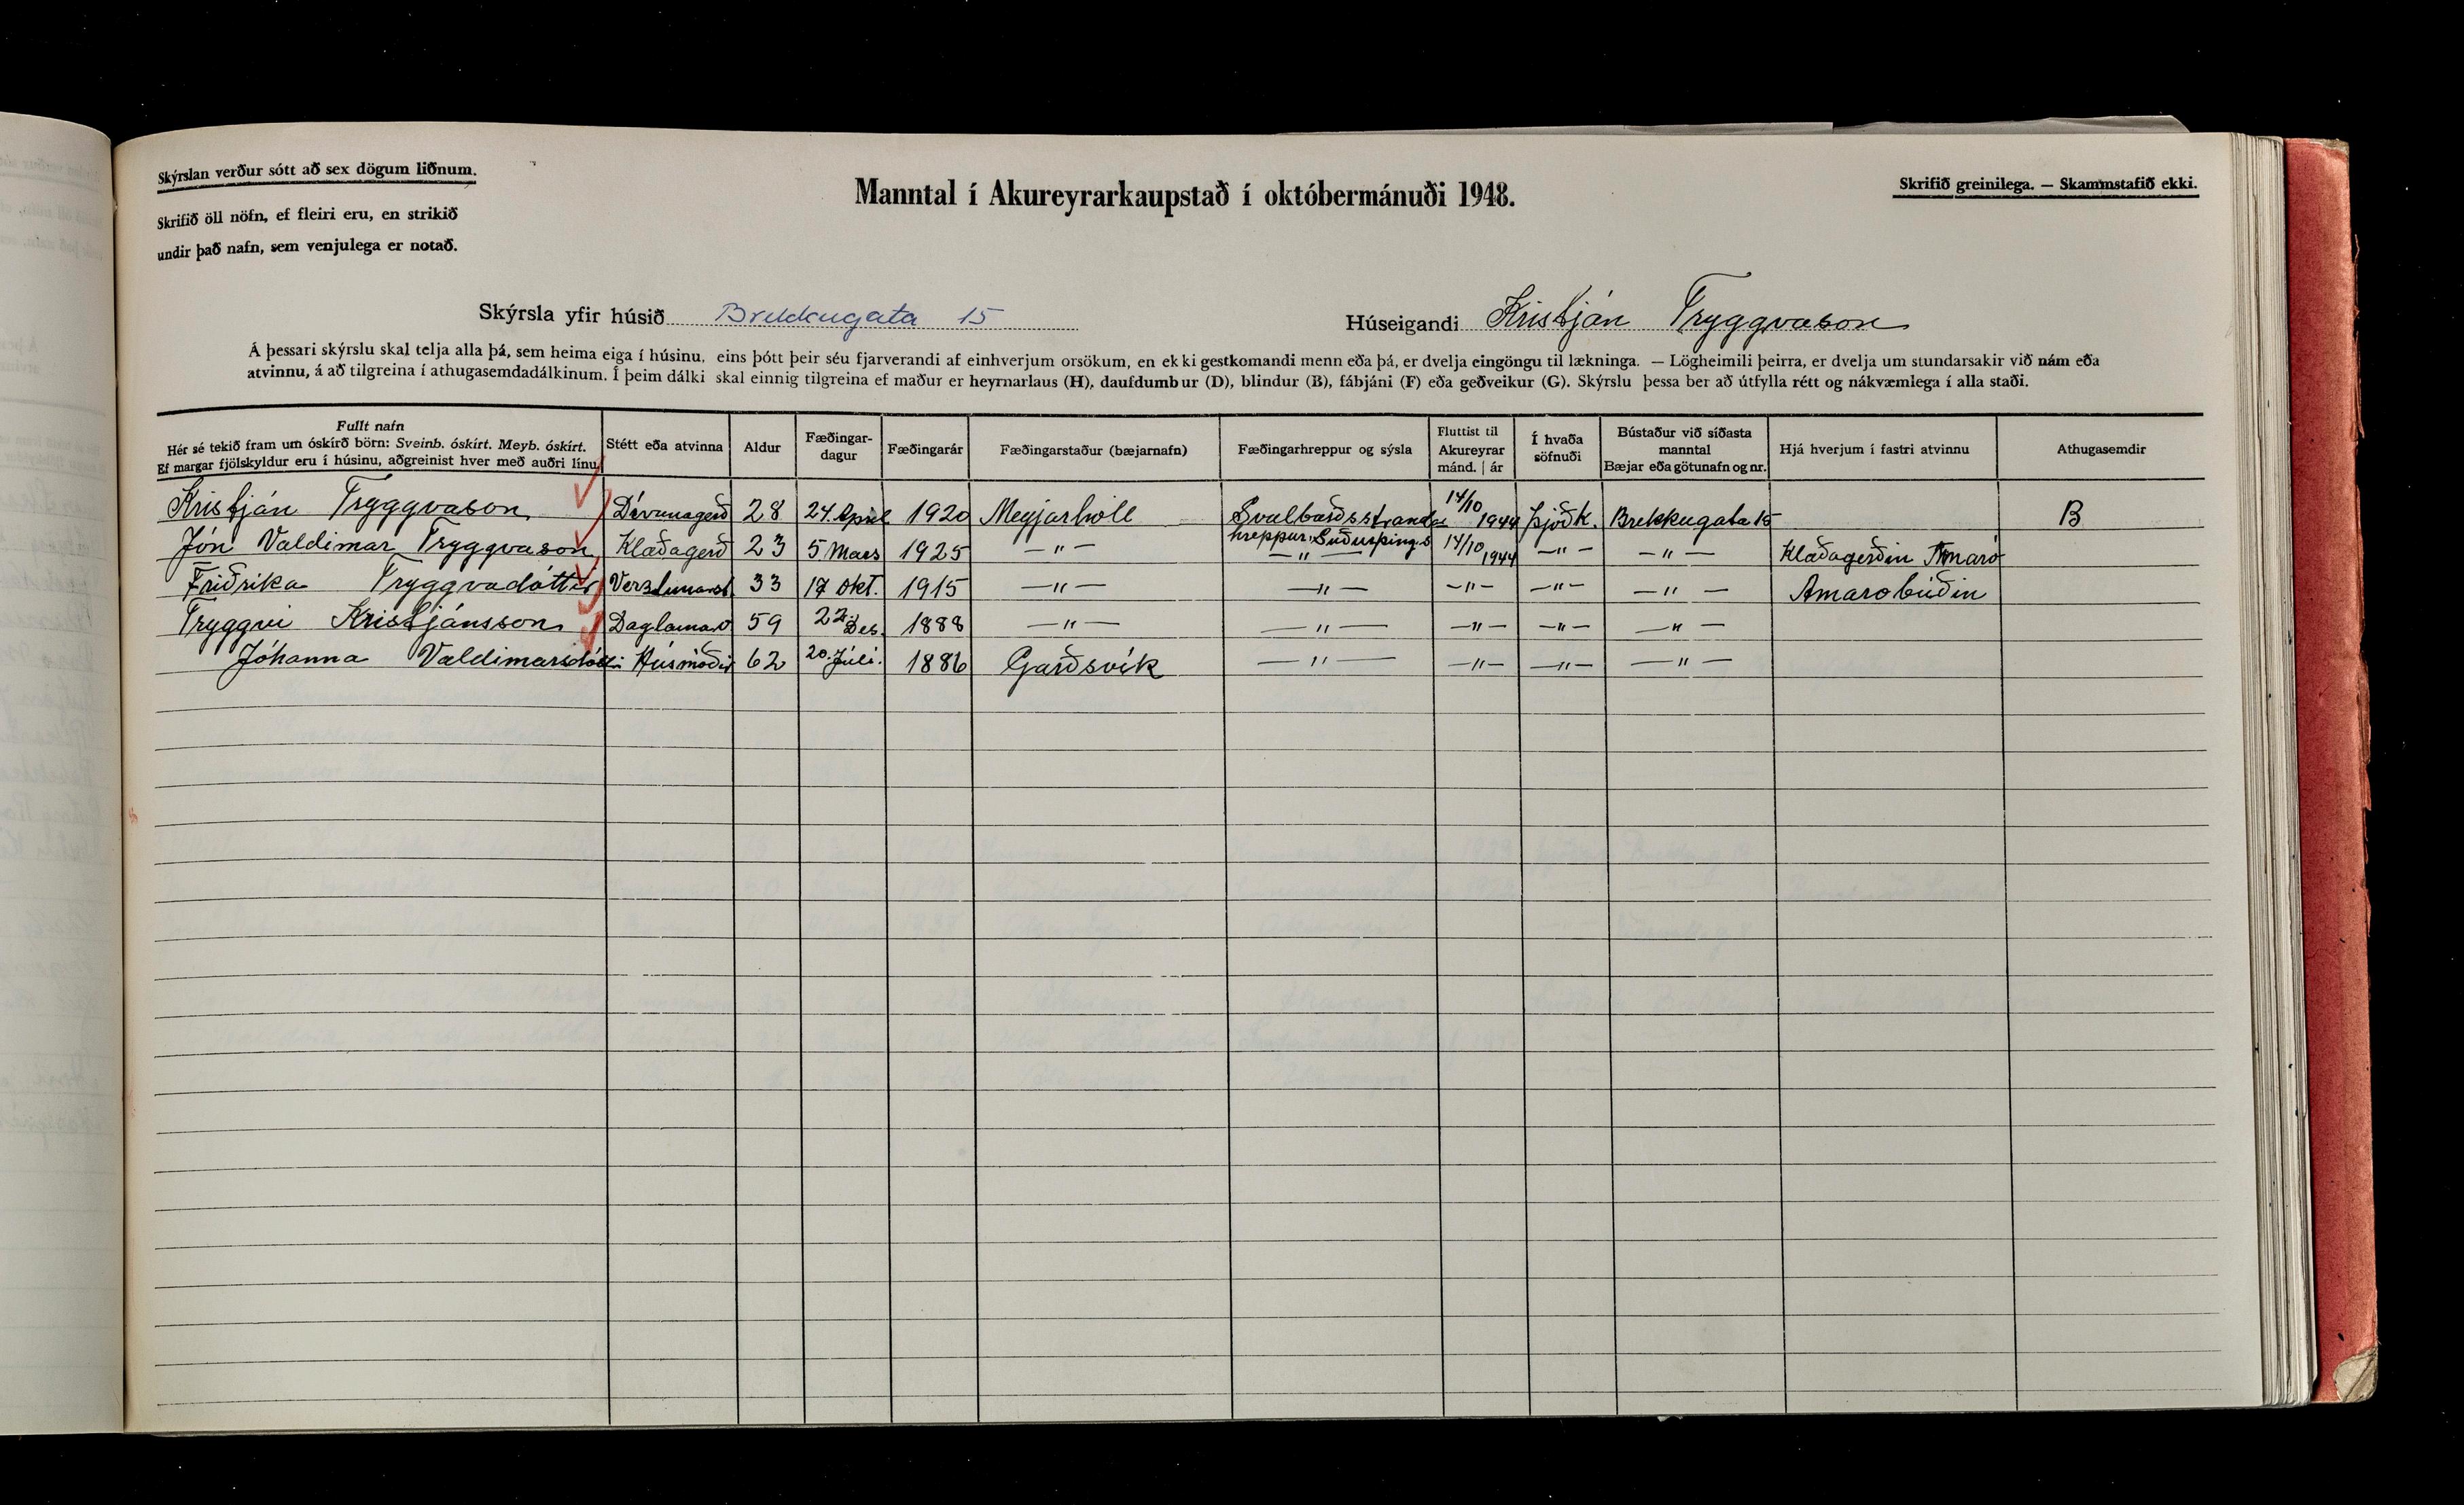 Skýrslan verður sótt að sex dögum liðnum.
Skrifið öll nöfn, ef fleiri eru, en strikið
undir það nafn, sem venjulega er notað.
Manntal í Akureyrarkaupstað í októbermánuði 1948.
Skrifið greinilega. — Skammstafið ekki.
Skýrsla yfir húsið Brekkugata 15
Húseigandi Kristján Tryggvason
Á þessari skýrslu skal telja alla þá, sem heima eiga í húsinu, eins þótt þeir séu fjarverandi af einhverjum orsökum, en ekki gestkomandi menn eða þá, er dvelja eingöngu til lækninga. — Lögheimili þeirra, er dvelja um stundarsakir við nám eða
atvinnu, á að tilgreina í athugasemdadálkinum. Í þeim dálki skal einnig tilgreina ef maður er heyrnarlaus (H), daufdumbur (D), blindur (B), fábjáni (F) eða geðveikur (G). Skýrslu þessa ber að útfylla rétt og nákvæmlega í alla staði.
Fullt nafn
Hér sé tekið fram um óskírð börn: Sveinb. óskírt. Meyb. óskírt.
Ef margar fjölskyldur eru í húsinu, aðgreinist hver með auðri línu.
Stétt eða atvinna
Aldur
Fæðingar-
dagur
Fæðingarár
Fæðingarstaður (bæjarnafn)
Fæðingarhreppur og sýsla
Fluttist til
Akureyrar
mánd. | ár
Í hvaða
söfnuði
Bústaður við síðasta
manntal
Bæjar eða götunafn og nr.
Hjá hverjum í fastri atvinnu
Athugasemdir
Kristján Tryggvason Dívanagerð 28 24. Apríl 1920 Meyjarhóll Svalbarðsstranda 14/10 1944 Þjóðk. Brekkugata 15 B
hreppur Suðurþing.s
Jón Valdimar Tryggvason Klæðagerð 23 5. Mars 1925 —"— —"— 14/10 1944 —"— —"— Klæðagerðin Amaró
Friðrika Tryggvadóttir Verzlunarst. 33 17 Okt. 1915 —"— —"— —"— —"— —"— Amarobúðin
Tryggvi Kristjánsson 59 22 Des. 1888 —"— —"— —"— —"— —"—
Jóhanna Valdimarsdóttir Húsmóðir 62 20. Júlí. 1886 Garðsvík —"— —"— —"— —"—